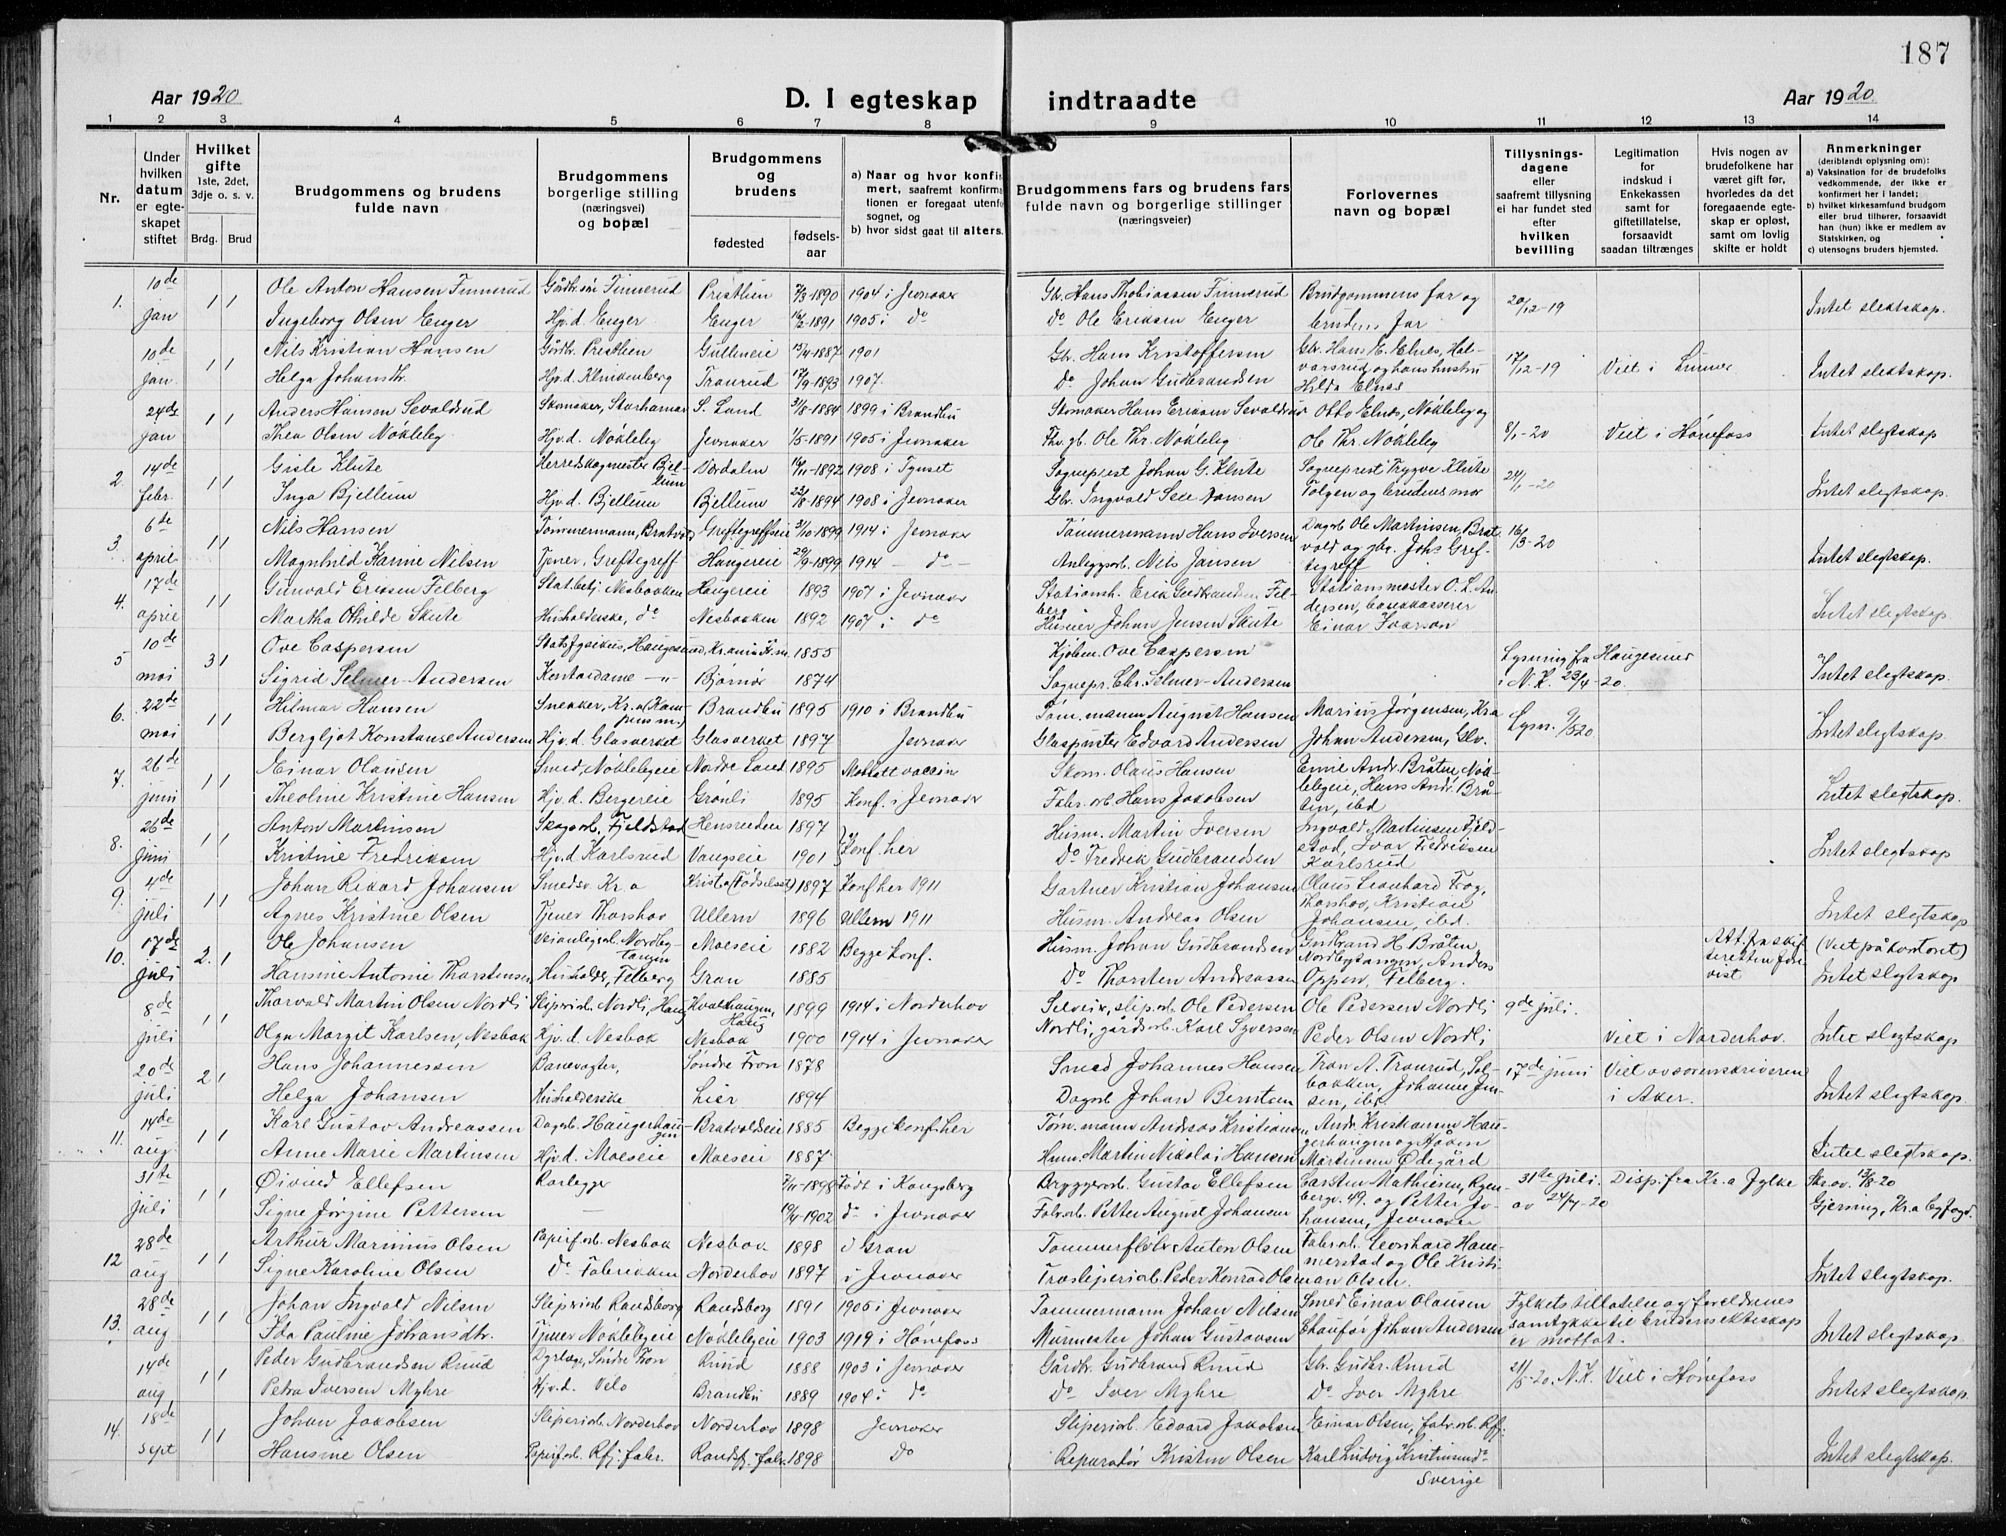 187
Aar 1920
D. I egteskap indtraadte
Aar 1920.
1 2 3 4 5 6 7 8 9 10 11 12 13 14
Nr.
Under hvilken datum er egteskapet stiftet
Hvilket gifte 1ste, 2det, 3dje o. s. v.
Brdg. Brud
Brudgommens og brudens fulde navn
Brudgommens borgerlige stilling (næringsvei) og bopæl
Brudgommens og brudens
fødested
fødselsaar
a) Naar og hvor konfirmert, saafremt konfirmationen er foregaat utenfor sognet, og
b) hvor sidst gaat til alters.
Brudgommens fars og brudens fars fulde navn og borgerlige stillinger (næringsveier)
Forlovernes navn og bopæl
Tillysningsdagene eller saafremt tillysning ei har fundet sted efter hvilken bevilling
Legitimation for indskud i Enkekassen samt for giftetillatelse, forsaavidt saadan tiltrænges
Hvis nogen av brudefolkene har været gift før, hvorledes da det foregaaende egteskap er opløst, samt om lovlig skifte er holdt
Anmerkninger (deriblandt oplysning om):
a) Vaksination for de brudefolks vedkommende, der ikke er konfirmert her i landet;
b) hvilket kirkesamfund brudgom eller brud tilhører, forsaavidt han (hun) ikke er medlem av Statskirken, og
c) utensogns bruders hjemsted.
1. 10de jan 1 1 Ole Anton Hansen Finnerud Gårdbr.søn Finnerud Prestlien 7/3-1890 1904 i Jevnaker Gbr. Hans Thobiassen Finnerud Brudgommens far og 20/12-19
Ingeborg Olsen Enger Hjv.d. Enger Enger 16/2-1891 1905 i do do Ole Eriksen Enger brudens far Intet slektskap.
10de jan 1 1 Nils Kristian Hansen Gårdbr. Prestlien Gullineie 15/4-1887 1901 Gbr. Hans Kristoffersen Gbr. Hans E. Elnes, Hal- 17/12-19 Viet i Lunner
Helga Johansdtr. Hjv.d. Klinkenberg Tranrud 17/9-1893 1907. do Johan Gudbrandsen varsrud og hans hustru Hilda Elnes Intet slektskap.
24de jan 1 1 Anders Hansen Sevaldrud Skomaker, Storhamar S. Land 31/8-1884 1899 i Brandbu Skomaker Hans Eriksen Sevaldrud Otto Elnes, Nøkleby og 8/1-20 Viet i Hønefoss
Thea Olsen Nøkleby Hjv.d. Nøkleby Jevnaker 1/5-1891 1905 i Jevnaker Fhv. gb. Ole Thr. Nøkleby Ole Thr. Nøkleby Intet slegtskap
2. 14de febr. 1 1 Gisle Klüte Herredskogmester Bjellum Verdalen 16/11-1892 1908 i Tynset Sogneprest Johan G. Klüte Sogneprest Trygve Klüte 24/1-20
Inga Bjellum Hjv.d. Bjellum Bjellum 22/8-1894 1908 i Jevnaker Gbr. Ingvald Seee Jansen Tolgen og brudens mor Intet slegtskap.
3. 6te april 1 1 Nils Hansen Tømmermann, Bratvold Greftegreffseie 3/10-1899 1914 i Jevnaker Tømmermann Hans Iversen Dagarb. Ole Martinsen, Brat- 16/3-20
Magnhild Karine Nilsen Tjener, Greftegreff Haugereie 29/9-1899 1914 - do - Anleggsarb. Nils Jansen vold og gbr. Johs Gref-tegreff Intet slegtskap.
4. 17de april 1 1 Gunvald Eriksen Felberg Stat.betj. Nesbakken Haugereie 1893 1907 i Jevnaker Stationsb. Erik Gudbrandsen Felberg Stationsmester O. L. An-
Martha Othilde Skute Husholderske, do Nesbakken 1892 1907 i do Huseier Johan Jensen Skute dersen, bokkasserer Einar Ivarson Intet slegtskap
5. 10de mai 3 1 Ove Caspersen Statsfysikus, Haugesund, Kr.ania 1855 Kjøbm. Ove Caspersen Lysning fra Haugesund
Sigrid Selmer-Andersen Kontordame -"- Bjørnør 1874 Sognepr. Chr. Selmer-Andersen i N. K. 23/4-20. Intet slegtskap.
6. 22de mai 1 1 Hilmar Hansen Snekker, Kr.a Brandbu 1895 1910 i Brandbu Tøm.mann August Hansen Marius Jørgensen, Kra Lysn. 9/5 20
Bergljot Konstanse Andersen Hjv.d. Glasverket Glasverket 1897 Jevnaker Glaspuster Edvard Andersen Johan Andersen, Glv. Intet slegtskap.
7. 26de juni 1 1 Einar Olausen Smed, Nøklebyeie Nordre Land 1895 Mottatt vaccine Skom. Olaus Hansen Emil Andr. Bråten, Nøk-
Theoline Kristine Hansen Hjv.d. Bergereie Grønli 1895 Konf. i Jevnaker Fabr.arb. Hans Jakobsen lebyeie, Hans Andr. Brå-ten, ibd Intet slegtskap.
8. 26de juni 1 1 Anton Martinsen Skogsarb. Fjeldstad Hensreiden 1897 Konf. her Husm. Martin Iversen Ingvald Martinsen Fjeld-
Kristine Fredriksen Hjv.d Karlsrud Vangseie 1901 do Fredrik Gudbrandsen stad, Ivar Fredriksen Karlsrud Intet slegtskap
9. 4de juli 1 1 Johan Rikard Johansen Smedsv Kr.a Krist.a (Fødselsst) 1897 Konf her 1911 Gartner Kristian Johansen Olaus Leonhard Frog,
Agnes Kristine Olsen Tjener Thorshov Ullern 1896 Ullern 1911 Husm. Andreas Olsen Thorshov, Kristian Johansen, ibd. Intet slegtskap
10. 17de juli 2. 1 Ole Johansen Veianlegsarb. Nordbytangen Moeseie 1882 Begge konf. Husm. Johan Gudbrandsen Gudbrand H. Bråten Att. fra skifteretten forevist (Viet på kontoret)
Hansine Antonie Thorstensen Husholder, Felberg Gran 1885 do Thorsten Andreassen Nordbytangen, Anders Oppen, Felberg. Intet slegtskap
8de juli 1 1 Thorvald Martin Olsen Nordli Sliperiarb. Nordli, Haug Hvalshaugen, Haug 1899 1914 i Norderhov Selveier, slip.arb. Ole Pedersen Ole Pedersen Nordli 9de juli.
Olga Margit Karlsen, Nesbak Hjv.d. Nesbak Nesbak 1900 1914 i Jevnaker Nordli, gårdsarb. Karl Syversen Peder Olsen Nordli Viet i Norderhov. Intet slegtskap
20de juli 2 1 Hans Johannessen Banevogter, Søndre Fron 1878 Smed Johannes Hansen Tron A. Tranrud, Sol- 17de juni Viet av sorenskriveren
Helga Johansen Husholderske Lier 1894 Dagarb. Johan Berntsen bakken, Johanne Jensen, ibd i Aker. Intet slegtskap.
11. 14de aug 1 1 Karl Gustav Andreassen Dagarb. Haugerhaugen Bratvoldseie 1885 Begge konf. her Tøm.mann Andreas Kristiansen Andr. Kristiansen Hau-
Anne Marie Martinsen Hjv.d. Moeseie Moeseie 1887 Husm. Martin Nikolai Hansen gerhaugen og Håkon Martinsen Ødegård Intet slegtskap.
31te juli 1 1 Øivind Ellefsen Rørlegger 7/11-1898 Født i Kongsberg Bryggerarb. Gustav Ellefsen Carsten Mathisen, Rosenbergv. 49. og Petter Jo- 31te juli. Disp. fra Kr.a fylke Skr. av. 13/8-20
Signe Jørgine Pettersen 19/4-1902 do i Jevnaker Fabr.arb. Petter August Johansen hansen, Jevnaker av 24/7-20 Gjersing, Kr.a byfogd.
12 28de aug 1 1 Arthur Marinius Olsen Papirf.arb. Nesbak Nesbak 1898 i Gran Tømmerfløter Anton Olsen Fabr.arb. Leonhard Ham-
Signe Karoline Olsen do Fabrikken Norderhov 1897 i Jevnaker Træsliperiarb. Peder Konrad Olsen merstad og Ole Kristi-an Olsen. Intet slegtskap.
13. 28de aug 1 1 Johan Ingvald Nilsen Sliperiarb Randsborg Randsborg 1891 1905 i Jevnaker Tømmermann Johan Nilsen Smed Einar Olausen Fylkets tillatelse og foreldrenes
Ida Pauline Johansdtr. Tjener Nøklebyeie Nøklebyeie 1903 1919 i Hønefoss Murmester Johan Gustavsen Chaufør Johan Andersen samtykke til brudens ekteskap er mottat. Intet slegtskap
14de aug 1 1 Peder Gudbrandsen Ruud Dyrlæge, Søndre Fron Ruud 1888 1903 i Jevnaker Gårdbr. Gudbrand Ruud Gbr. Gudbr. Ruud 21/5-20. N.K. Viet i Hønefoss
Petra Iversen Myhre Hjv.d. Velo Brandbu 1889 1904 i do do Iver Myhre do Iver Myhre Intet slegtskap
14. 18de sept 1 1 Johan Jakobsen Sliperiarb. Norderhov Norderhov 1898 Jevnaker Sliperiarb. Edvard Jakobsen Einar Olsen, fabr.arb. Rfj.
Hansine Olsen Papirf.arb. Rfj. fabr. Randsfj. fabr. 1898 do Reparatør Kristen Olsen Karl Ludvig Kristinsund Sverige Intet slegtskap.